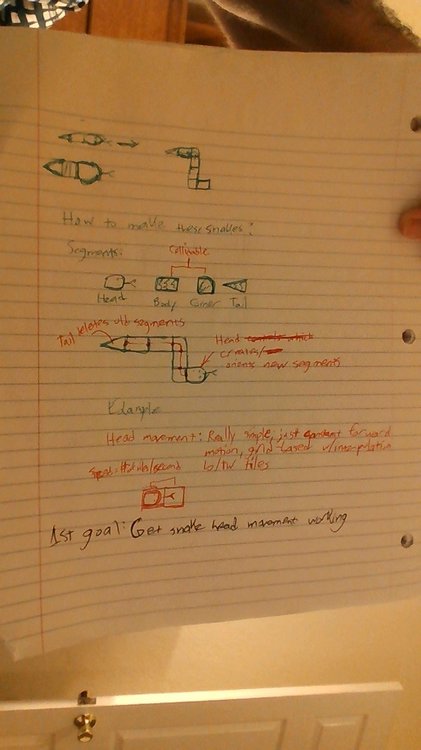 How to make these snakes:
Segments:
Collidable
Head
Body
Corner
Tail
Tail deletes old segments
Head controls which
creates/
orients new segments
Example
Head movement: Really simple, just constant forward
motion, grid based w/interpolation
b/tw tiles
Speed: # tiles/second
1st goal: Get snake head movement working